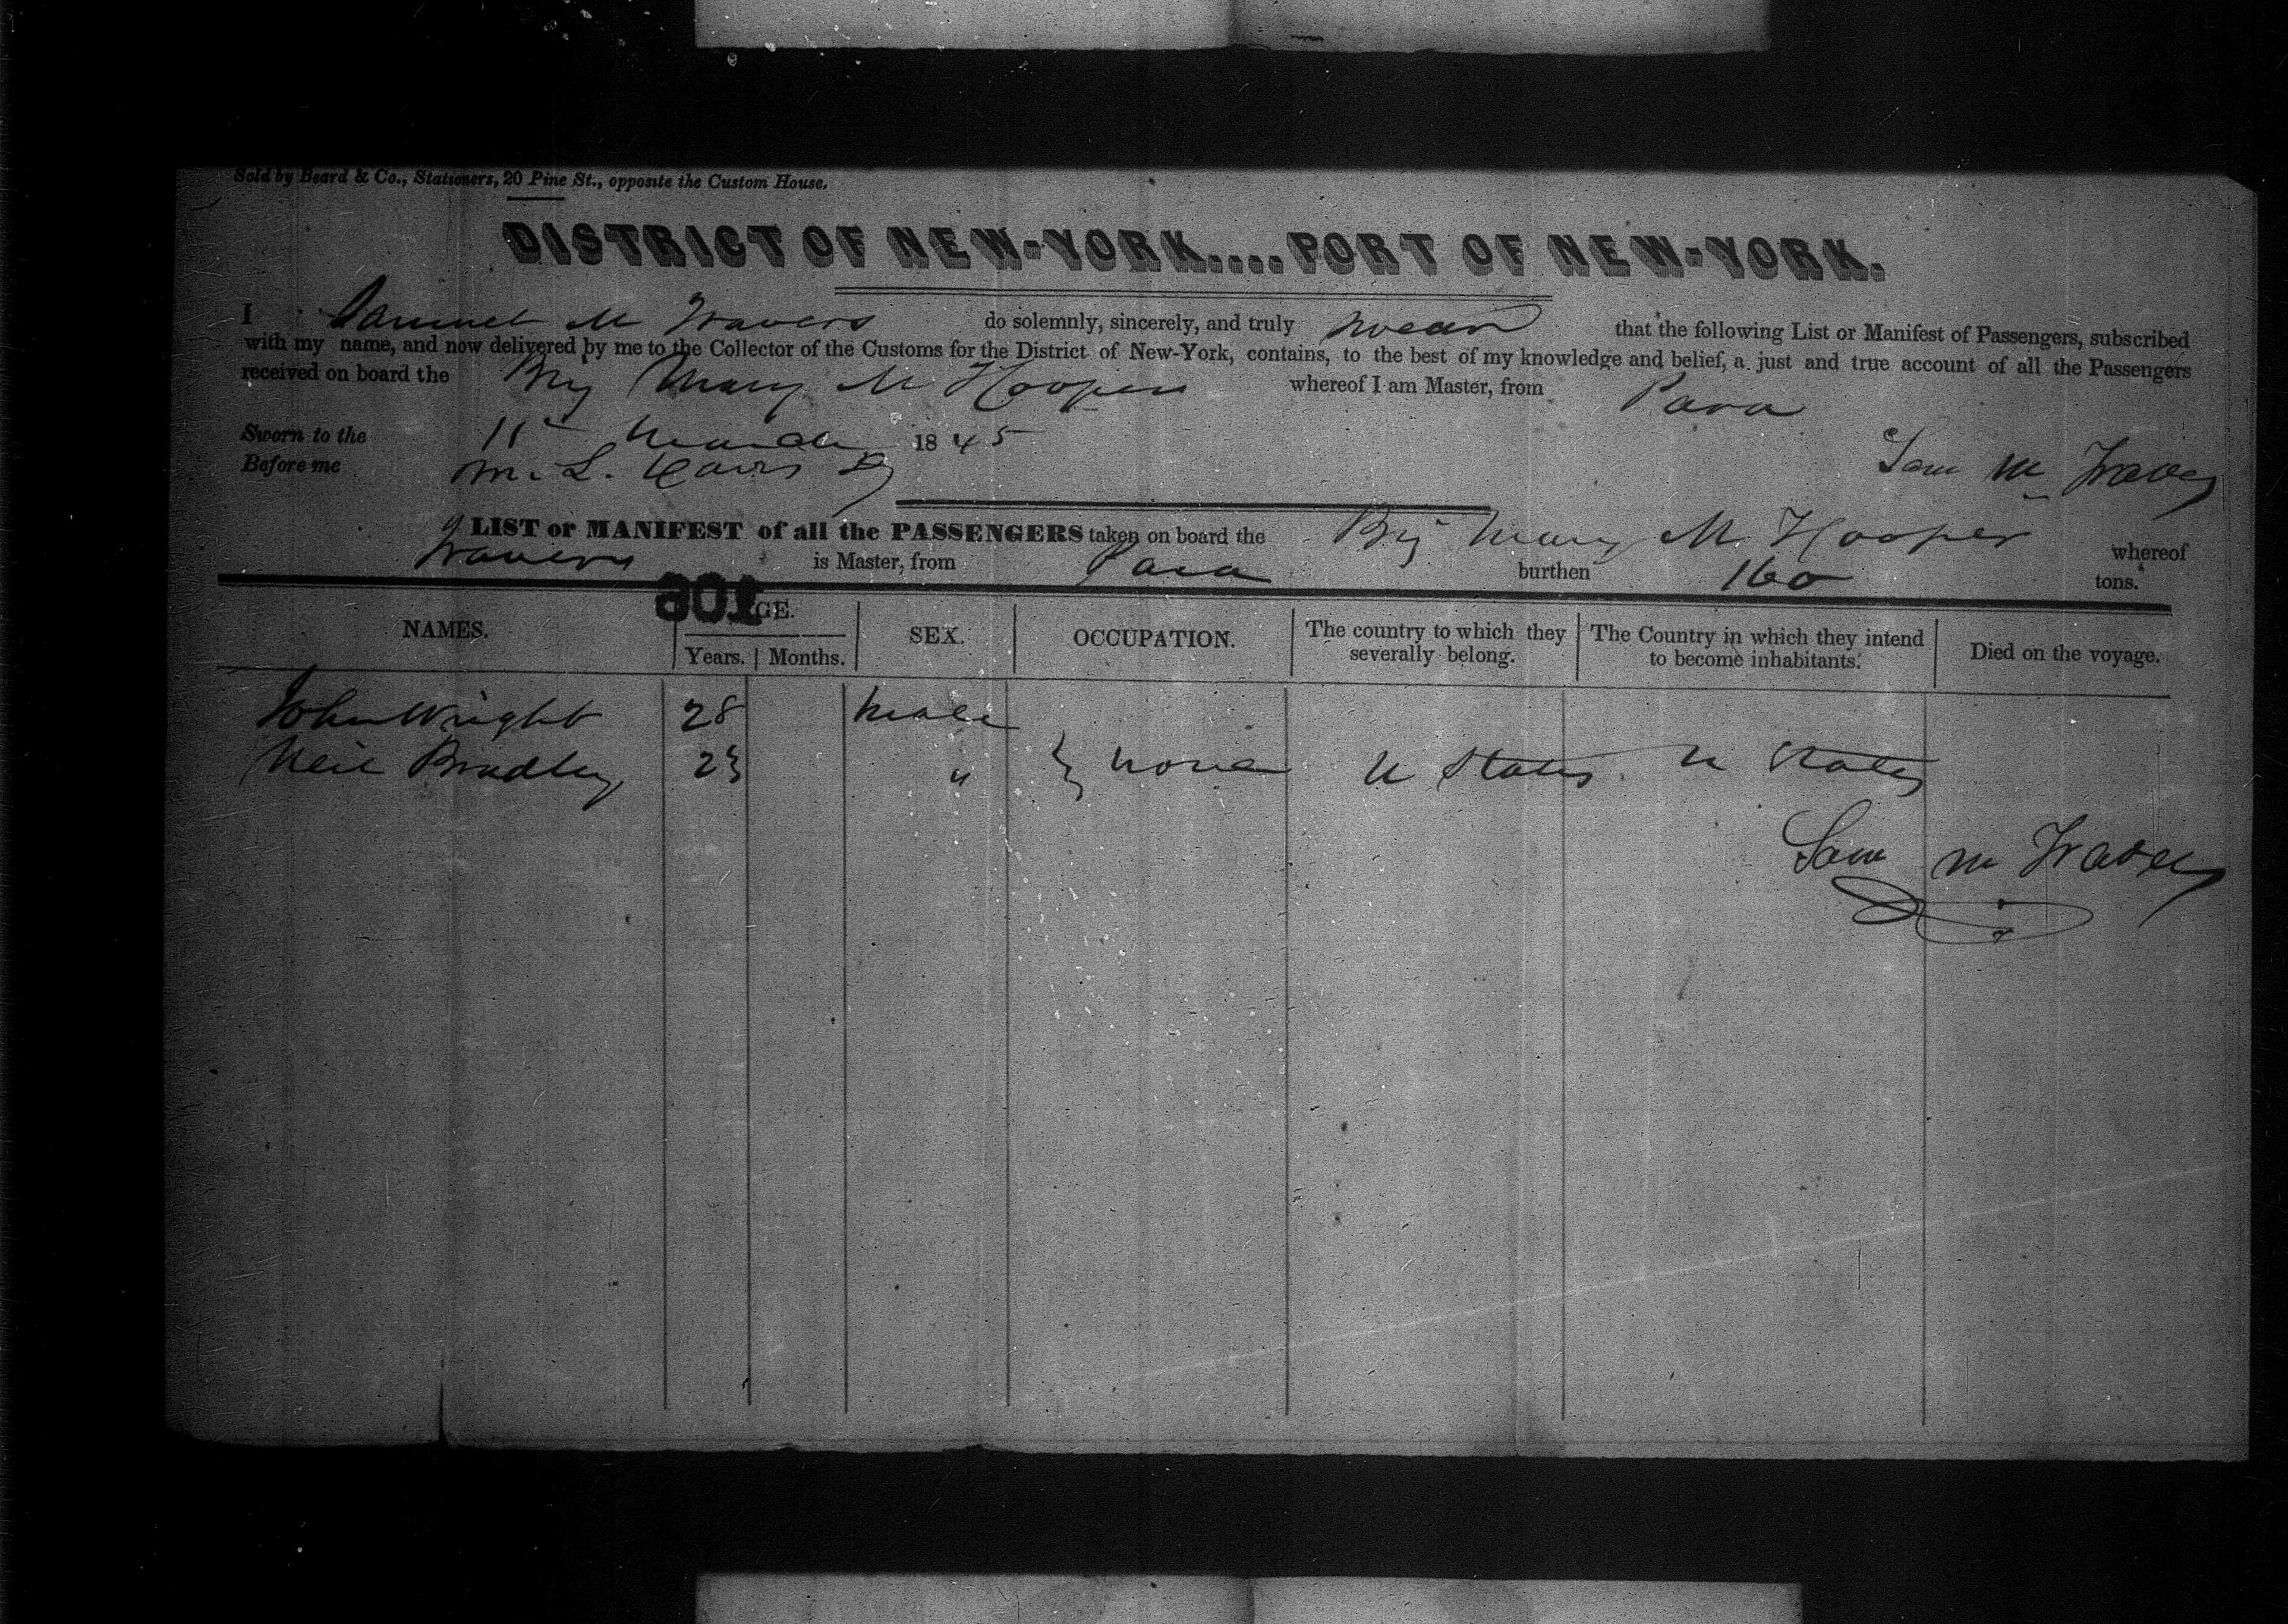 Sold by Beard & Co., Stationers, 20 Pine St., opposite the Custom House.
DISTRICT OF NEW-YORK....PORT OF NEW-YORK.
I Samuel M Travers do solemnly, sincerely, and truly swear that the following List or Manifest of Passengers, subscribed
with my name, and now delivered by me to the Collector of the Customs for the District of New-York, contains, to the best of my knowledge and belief, a just and true account of all the Passengers
received on board the Brig Mary M Hooper whereof I am Master, from Para
Sworn to the 11th March 1845
Before me M. L. Davis Sam M Travers
LIST or MANIFEST of all the PASSENGERS taken on board the Brig Mary M. Hooper whereof
Travers is Master, from Para burthen 160 tons.
106
AGE.
NAMES. Years. Months. SEX. OCCUPATION. The country to which they severally belong. The Country in which they intend to become inhabitants. Died on the voyage.
John Wright 28 Male
Neil Bradley 23 " } None U States U States
Sam M Travers